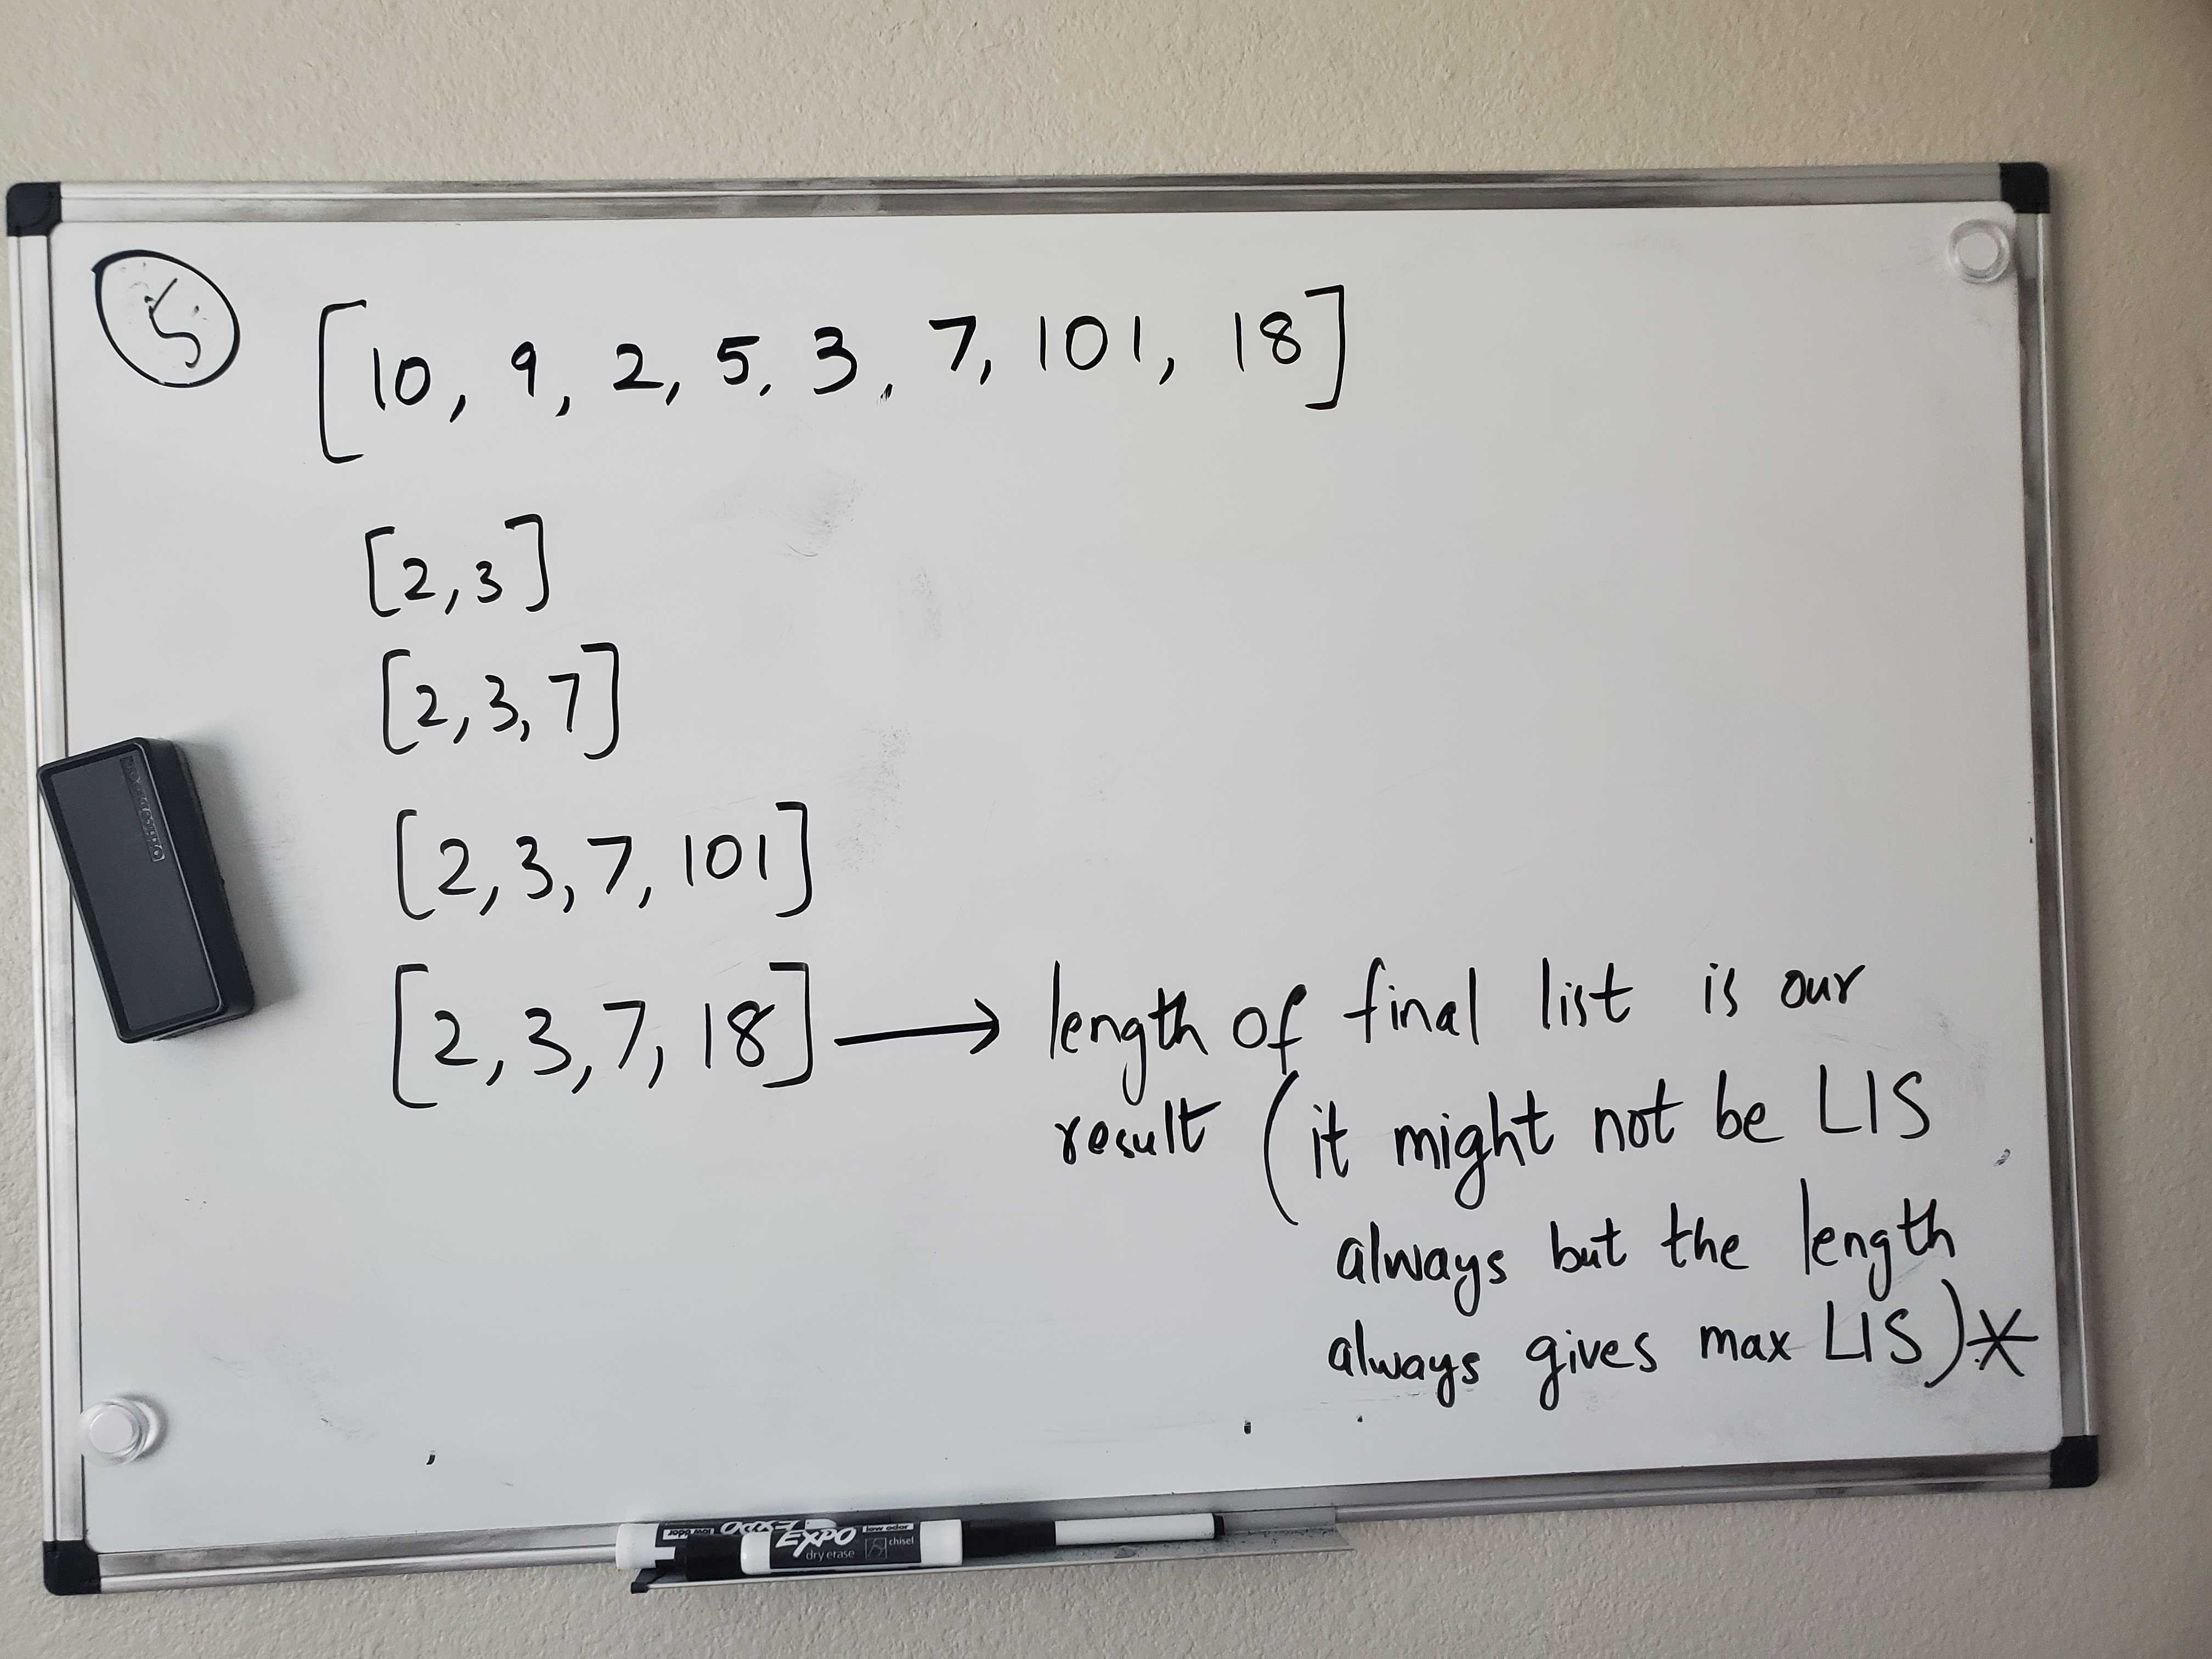 5
[10, 9, 2, 5, 3, 7, 101, 18]
[2, 3]
[2, 3, 7]
[2, 3, 7, 101]
[2, 3, 7, 18] → length of final list is our
result (it might not be LIS
always but the length
always gives max LIS)*
EXPO low odor
dry erase chisel
low odor EXPO